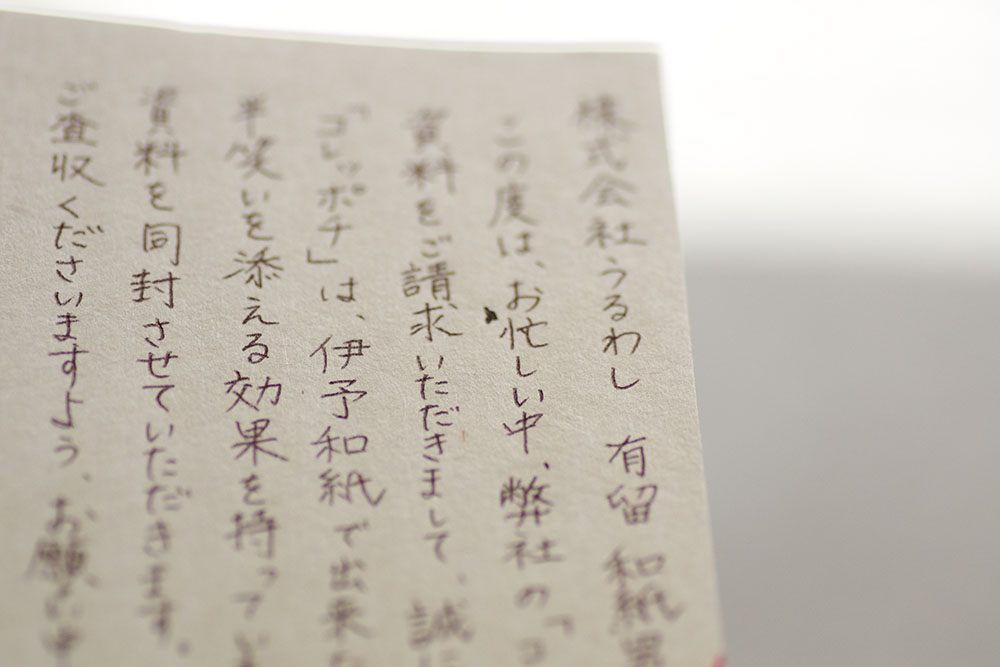 株式会社うるわし 有留 和紙男
この度は、お忙しい中、弊社の「コ
資料をご請求いただきまして、誠に
「コレッポチ」は、伊予和紙で出来た
半笑いを添える効果を持ってい
資料を同封させていただきます。
ご査収くださいますよう、お願い申